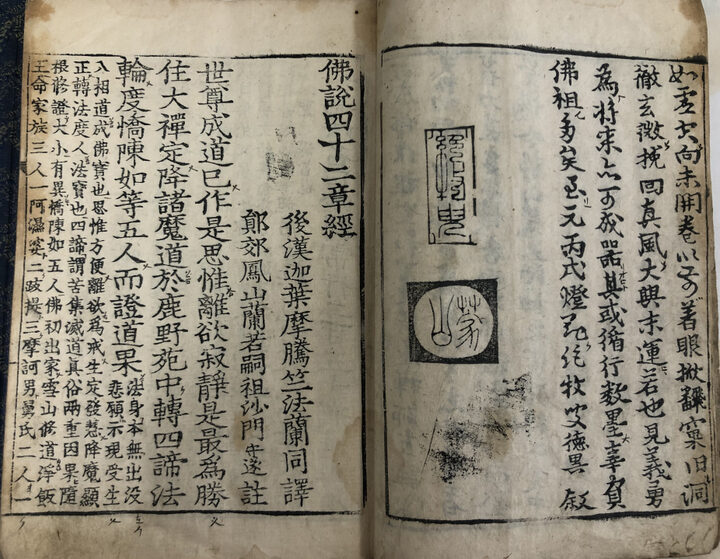 向未開卷以前著眼掀飜窠旧洞
徹玄微挽回真風大興末運若也見義勇
為將來亦可成器其或循行数墨辜負
佛祖多矣至元丙戌燈節絕牧叟德異 叙
絕牧叟
蒙山
佛說四十二章經
後漢迦葉摩騰竺法蘭同譯
鄭郊鳳山蘭若嗣祖沙門守遂註
世尊成道已作是思惟離欲寂靜是最為勝
住大禪定降諸魔道於鹿野苑中轉四諦法
輪度憍陳如等五人而證道果
法身本無出没
悲願示現受生
八相道成佛寶也思惟方便離欲為戒生定發慧降魔顯
正轉法度人法寶也四諦謂苦集滅道真俗兩重因果隨
根修證大小有異憍陳如五人佛初出家雪山修道淨飯
王命家族三人一阿濕婆二跋提三摩訶男舅氏二人一